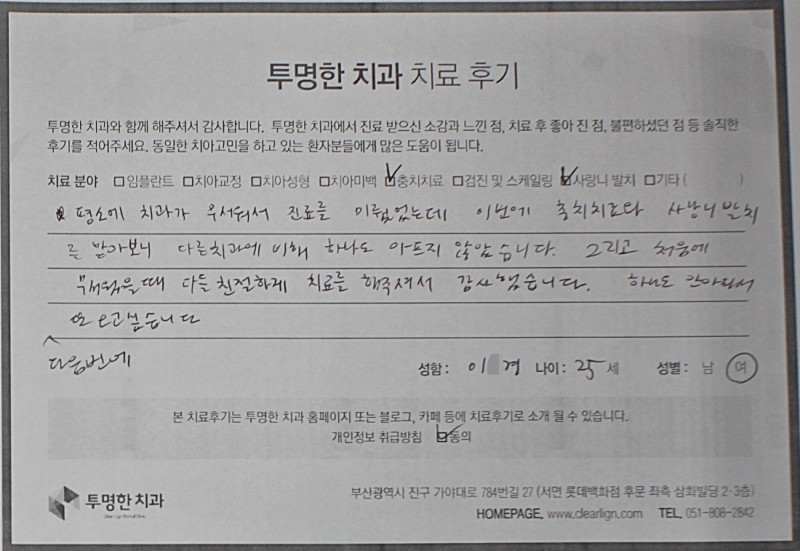 투명한 치과 치료 후기
투명한 치과와 함께 해주셔서 감사합니다. 투명한 치과에서 진료 받으신 소감과 느낀 점, 치료 후 좋아 진 점, 불편하셨던 점 등 솔직한
후기를 적어주세요. 동일한 치아고민을 하고 있는 환자분들에게 많은 도움이 됩니다.
치료 분야 □임플란트 □치아교정 □치아성형 □치아미백 ☑충치치료 □검진 및 스케일링 ☑사랑니 발치 □기타 ( )
평소에 치과가 무서워서 진료를 미뤘었는데 이번에 충치치료와 사랑니발치
를 받아보니 다른치과에 비해 하나도 아프지 않았습니다. 그리고 처음에
무서웠을때 다들 친절하게 치료를 해주셔서 감사했습니다. 하나도 안아파서
또 오고싶습니다
다음번에
성함: 이 경 나이: 25 세 성별: 남 여
본 치료후기는 투명한 치과 홈페이지 또는 블로그, 카페 등에 치료후기로 소개 될 수 있습니다.
개인정보 취급방침 ☑동의
투명한 치과
부산광역시 진구 가야대로 784번길 27 (서면 롯데백화점 후문 좌측 삼화빌딩 2-3층)
HOMEPAGE. www.clearlign.com TEL. 051-808-2842